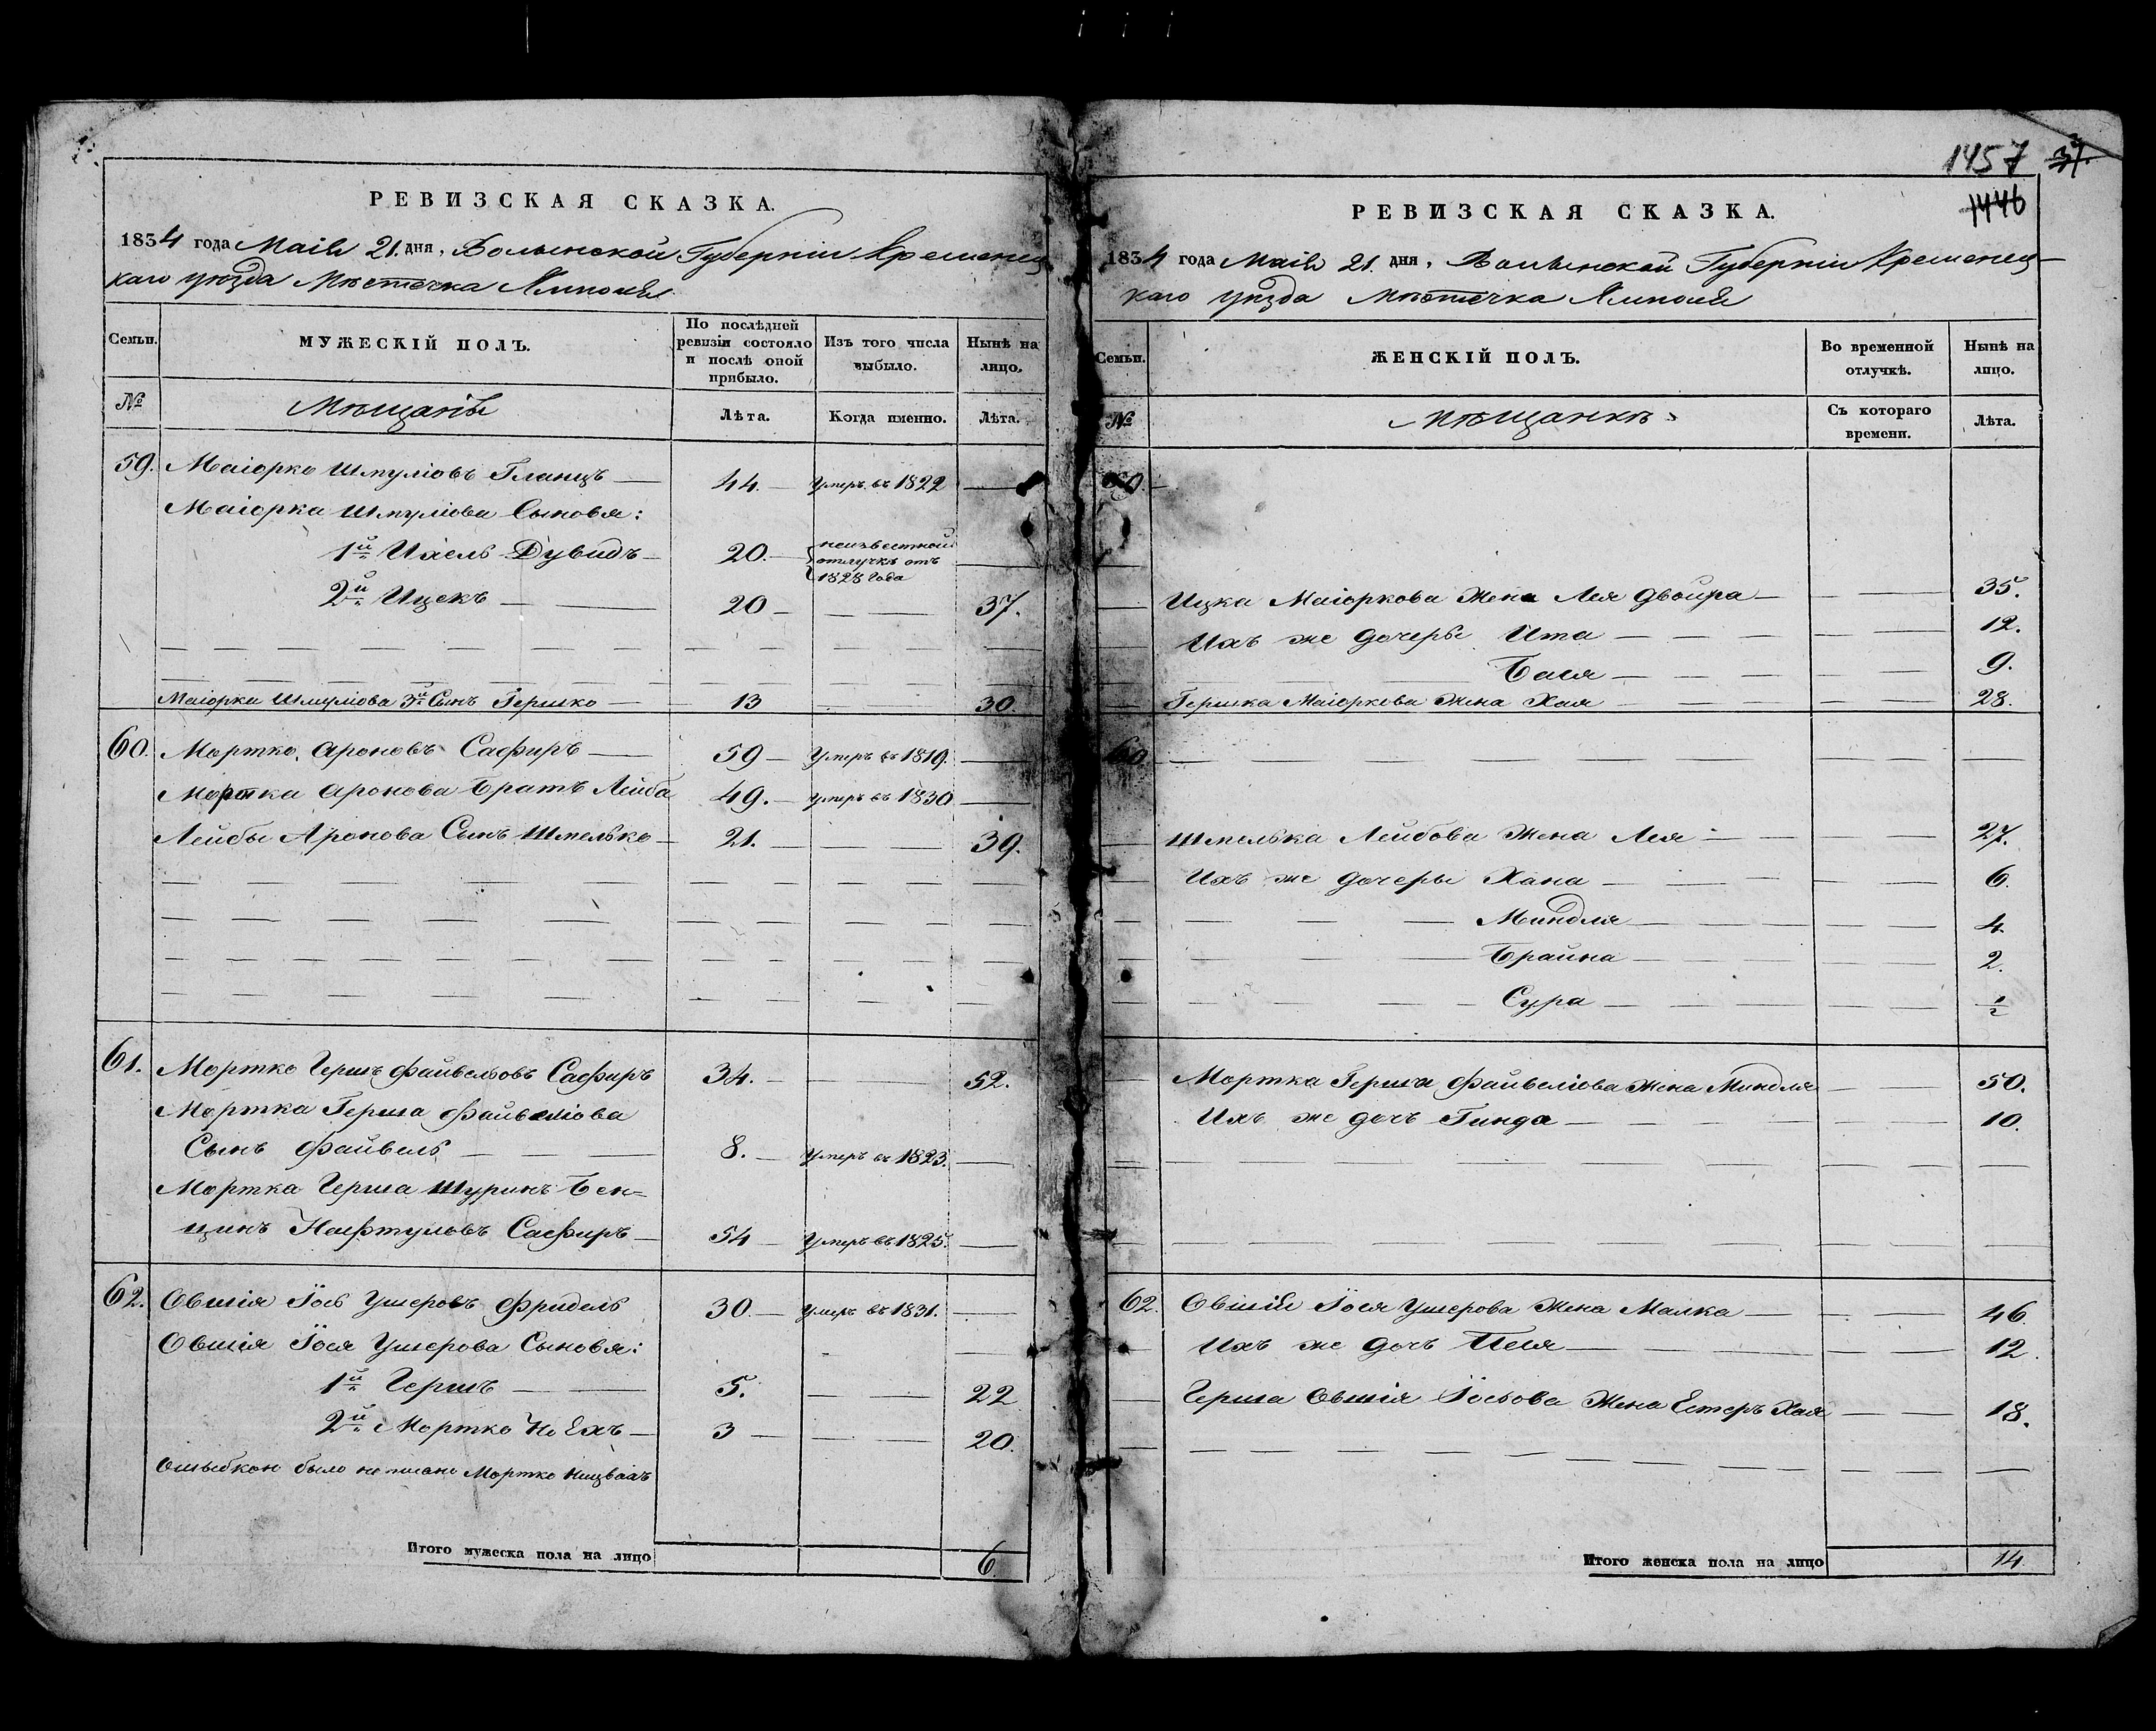 РЕВИЗСКАЯ СКАЗКА.
1834 года Маія 21. дня, Волынской Губерніи Кременец
каго уѣзда Мѣстечка Ямполя
Семьи.
МУЖЕСКІЙ ПОЛЪ.
По послѣдней ревизіи состояло и послѣ оной прибыло.
Изъ того числа выбыло.
Нынѣ на лицо.
№
Мѣщанъ
Лѣта.
Когда именно.
Лѣта.
59. Маіорко Шмуліовъ Гланцъ 44. Умеръ въ 1822
Маіорка Шмуліова Сыновья:
1й Ихель Дувидъ 20. неизвестной отлучкѣ отъ 1828 года
2й Ицекъ 20 37.
Маіорка Шмуліова 3й Сынъ Гершко 13 30.
60. Мортко Ароновъ Сафиръ 59 Умеръ въ 1819.
Мортка Аронова Братъ Лейба 49. умеръ въ 1830
Лейбы Аронова Сынъ Шмелько 21. 39.
61. Мортко Гершъ Файвельовъ Сафиръ 34. 52.
Мортка Герша Файвеліова
Сынъ Файвель 8. Умеръ въ 1823.
Мортка Герша Шуринъ Бен=
ционъ Нафтуловъ Сафиръ 54 Умеръ въ 1825.
62. Овшія Іось Ушеровъ Фридель 30. Умеръ въ 1831.
Овшія Іося Ушерова Сыновья:
1й Гершъ 5. 22
2й Мортко 3 20.
Ошыбкои было написано Мортко
Итого мужеска пола на лицо 6.
1457 37.
1446
РЕВИЗСКАЯ СКАЗКА.
1834 года Маія 21. дня, Волынской Губерніи Кременец-
каго уѣзда Мѣстечка Ямполя
Семьи.
ЖЕНСКІЙ ПОЛЪ.
Во временной отлучкѣ.
Нынѣ на лицо.
№
Мѣщанкѣ
Съ котораго времени.
Лѣта.
Ицка Маіоркова Жена Лея Двойра 35.
Ихъ же дочеры Ита 12.
Бася 9.
Гершка Маіоркова Жена Хая 28.
60
Шмелька Лейбова Жена Лея 27.
Ихъ же дочеры Хана 6.
Миндля 4.
Брайна 2.
Сура ½
Мортка Герша Файвеліова Жена Миндля 50.
Ихъ же дочъ Гинда 10.
62. Овшіи Іося Ушерова Жена Малка 46.
Ихъ же дочъ Песя 12.
Герша Овшія Іосьова Жена Естеръ Хая 18.
Итого женска пола на лицо 14